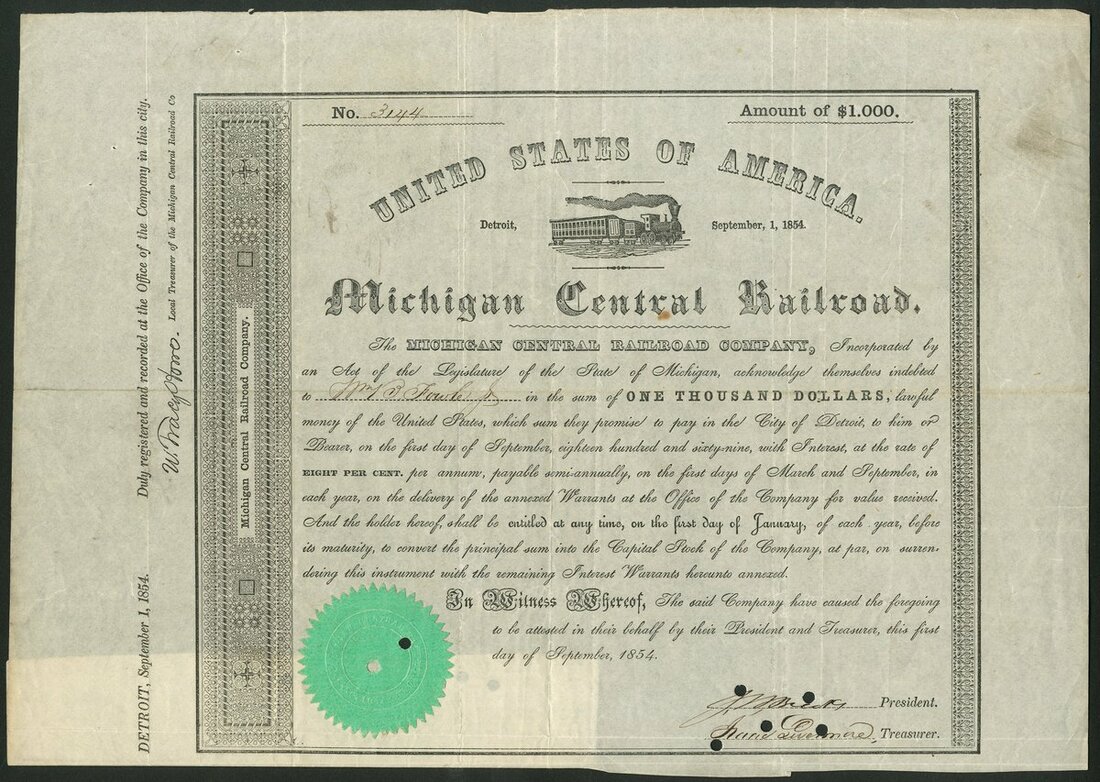 No. 3144
Amount of $1.000.
UNITED STATES OF AMERICA.
Detroit,
September, 1, 1854.
Michigan Central Railroad.
The MICHIGAN CENTRAL RAILROAD COMPANY, Incorporated by
an Act of the Legislature of the State of Michigan, acknowledge themselves indebted
to Wm B. Fowle Jr in the sum of ONE THOUSAND DOLLARS, lawful
money of the United States, which sum they promise to pay in the City of Detroit, to him or
Bearer, on the first day of September, eighteen hundred and sixty-nine, with Interest, at the rate of
EIGHT PER CENT. per annum, payable semi-annually, on the first days of March and September, in
each year, on the delivery of the annexed Warrants at the Office of the Company for value received.
And the holder hereof, shall be entitled at any time, on the first day of January, of each year, before
its maturity, to convert the principal sum into the Capital Stock of the Company, at par, on surren-
dering this instrument with the remaining Interest Warrants hereunto annexed.
In Witness Whereof, The said Company have caused the foregoing
to be attested in their behalf by their President and Treasurer, this first
day of September, 1854.
President.
Isaac Livermore, Treasurer.
Michigan Central Railroad Company.
DETROIT, September 1, 1854. Duly registered and recorded at the Office of the Company in this city.
W. Tracy Howe. Local Treasurer of the Michigan Central Railroad Co